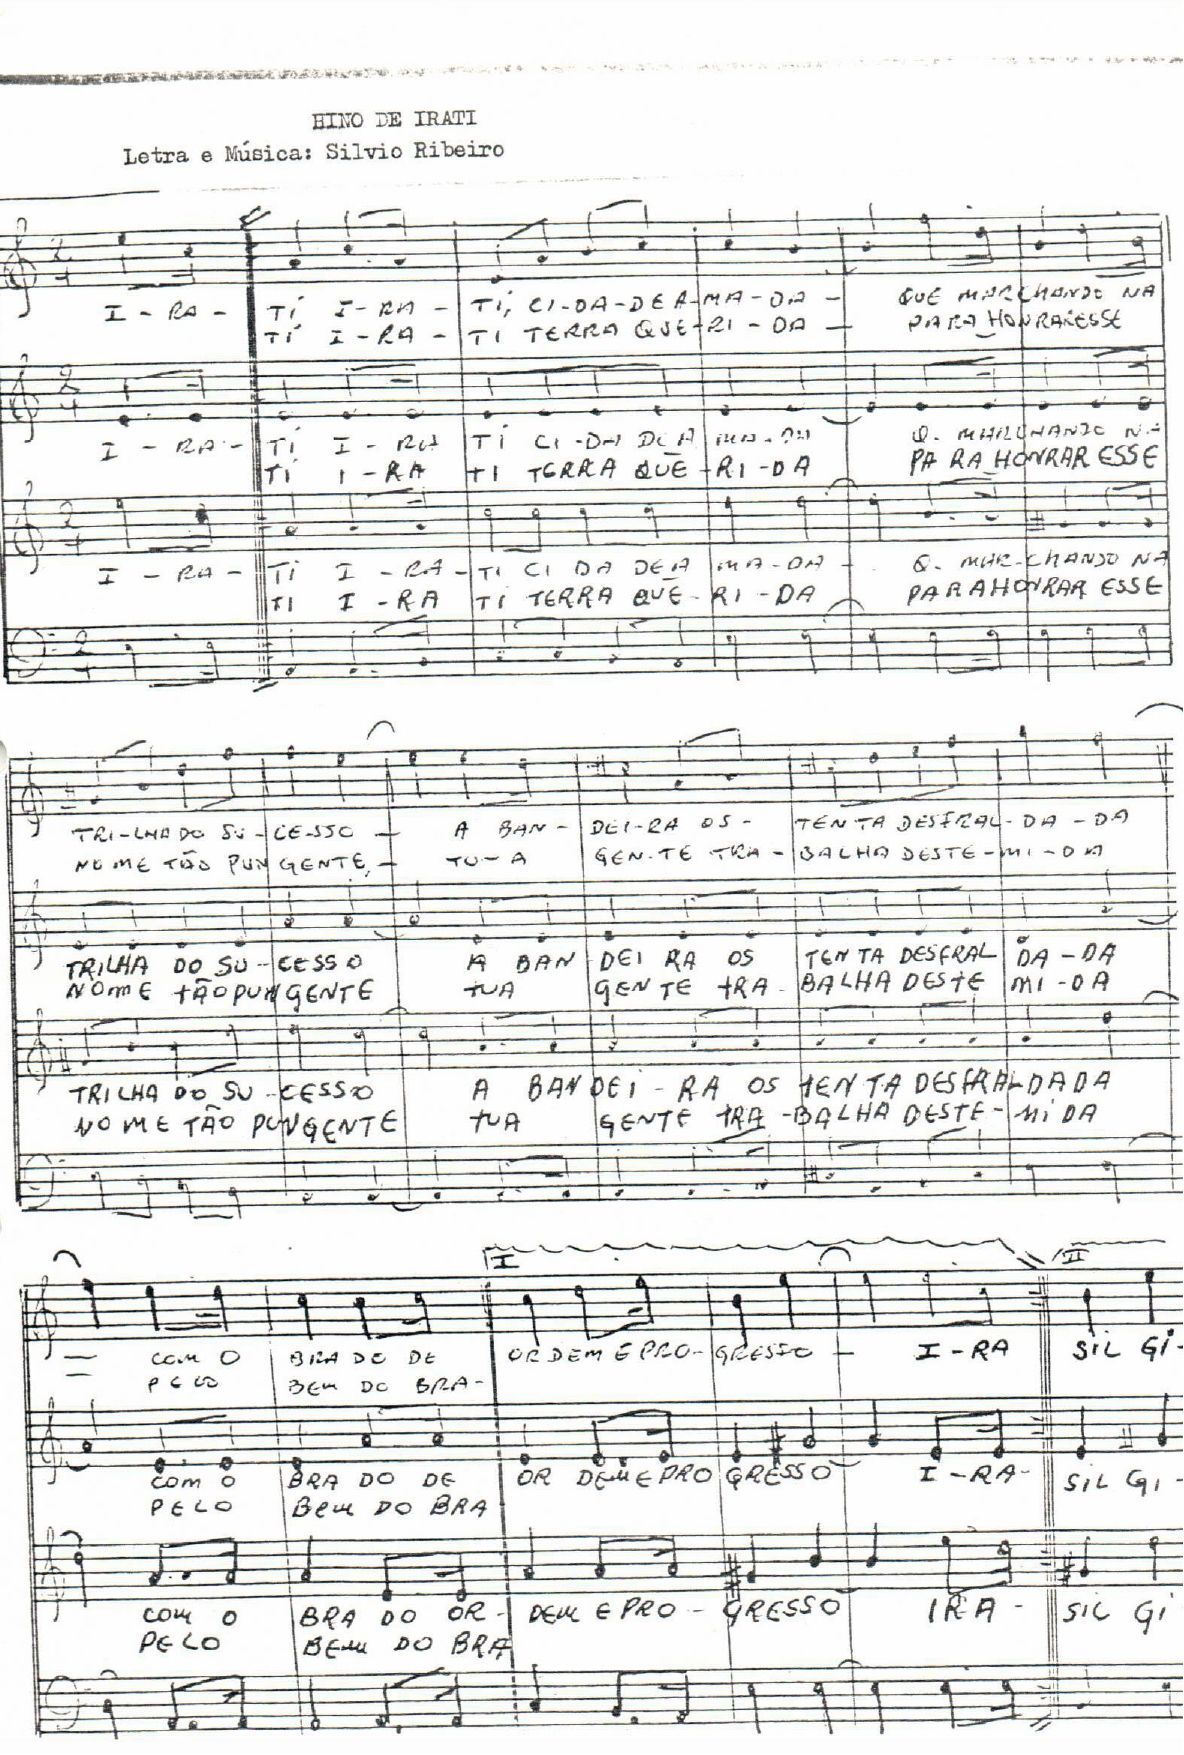 HINO DE IRATI
Letra e Música: Silvio Ribeiro
2 4
I - RA - TÍ I - RA - TÍ, CI-DA-DE A-MA-DA - QUE MARCHANDO NA
TÍ I - RA - TI TERRA QUE-RI-DA - PARA HONRAR ESSE
2 4
I - RA - TÍ I - RA TÍ CI-DA DE A MA-DA Q. MARCHANDO NA
TÍ I - RA TI TERRA QUE-RI-DA PARA HONRAR ESSE
2 4
I - RA - TI I - RA - TI CI DA DE A MA-DA - Q. MAR-CHANDO NA
TI I - RA TI TERRA QUE-RI-DA PARA HONRAR ESSE
2 4
TRI-LHA DO SU-CE-SSO - A BAN- DEI-RA OS- TEN TA DESFRAL-DA-DA
NOME TÃO PUN GENTE, - TU-A GEN-TE TRA-BALHA DESTE-MI-DA
TRILHA DO SU-CESSO A BAN DEI RA OS TEN TA DESFRAL DA-DA
NOME TÃO PUN GENTE TUA GENTE TRA-BALHA DESTE MI-DA
TRILHA DO SU-CESSO A BAN DEI-RA OS TEN TA DESFRAL-DADA
NOME TÃO PUN GENTE TUA GENTE TRA-BALHA DESTE-MIDA
I II
COM O BRA DO DE ORDEM E PRO-GRESSO - I-RA SIL GI-
PELO BEM DO BRA-
COM O BRA DO DE OR DEM E PRO GRESSO I-RA- SIL GI-
PELO BEM DO BRA
COM O BRA DO OR- DEM E PRO-GRESSO IRA- SIL GI-
PELO BEM DO BRA